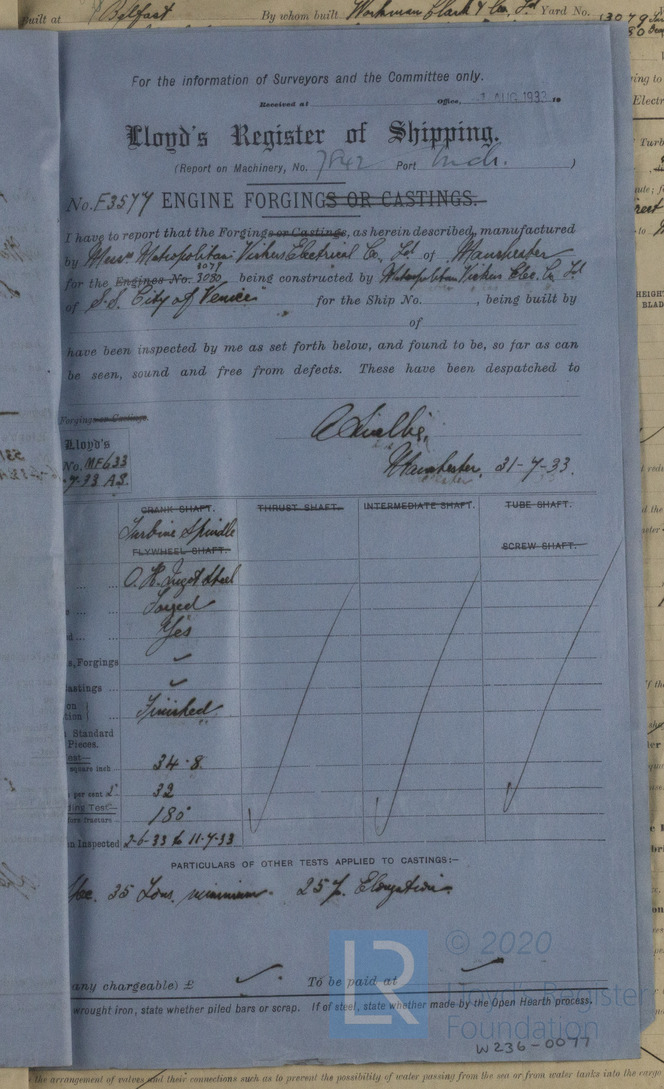 Built at Belfast By whom built Workman Clark & Co. Ltd Yard No. 3079
For the information of Surveyors and the Committee only.
Received at Office, AUG 1933 19
Lloyd's Register of Shipping.
(Report on Machinery, No. 7842 Port )
No. F3577 ENGINE FORGINGS OR CASTINGS.
I have to report that the Forgings or Castings, as herein described, manufactured
by Messrs Metropolitan Vickers Electrical Co. Ltd of Manchester
3079
for the Engines No. 3080 being constructed by Metropolitan Vickers Elec. Co Ltd
of S.S. City of Venice for the Ship No. , being built by
of
have been inspected by me as set forth below, and found to be, so far as can
be seen, sound and free from defects. These have been despatched to
Forgings or Castings
Lloyd's
No. MF633
7-33 A.S.
Manchester, 31-7-33.
CRANK SHAFT. THRUST SHAFT. INTERMEDIATE SHAFT. TUBE SHAFT.
Turbine Spindle
FLYWHEEL SHAFT. SCREW SHAFT.
O.H. Ingot Steel
Forged
Yes
Forgings
Castings
Finished
Standard
Pieces.
34.8
square inch
per cent 32
180°
Inspected 2-6-33 to 11-7-33
PARTICULARS OF OTHER TESTS APPLIED TO CASTINGS:—
35 Tons minimum. 25% Elongation
any chargeable) £ To be paid at
wrought iron, state whether piled bars or scrap. If of steel, state whether made by the Open Hearth process.
LR
© 2020
Lloyd's Register
Foundation
W236-0077
the arrangement of valves and their connections such as to prevent the possibility of water passing from the sea or from water tanks into the cargo